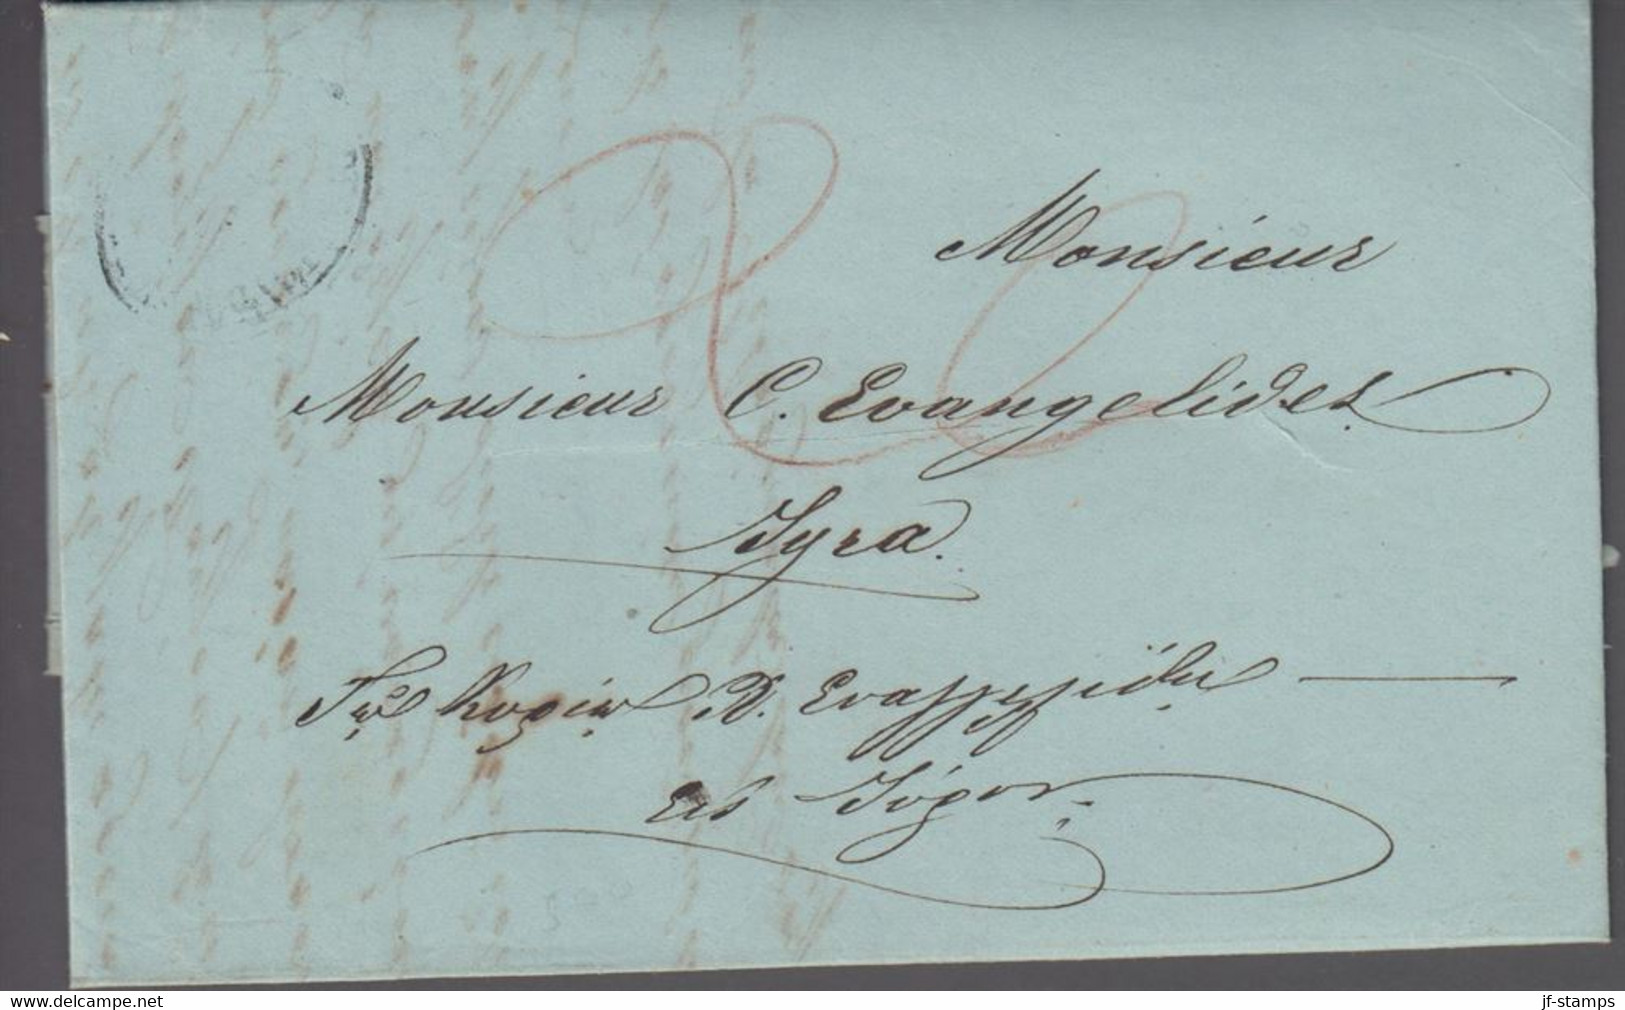 Monsieur
Monsieur C. Evangelides
Syra.
Τῷ Κυρίῳ Κ. Ευαγγελίδῃ
εἰς Σύρον.
www.delcampe.net
jf-stamps